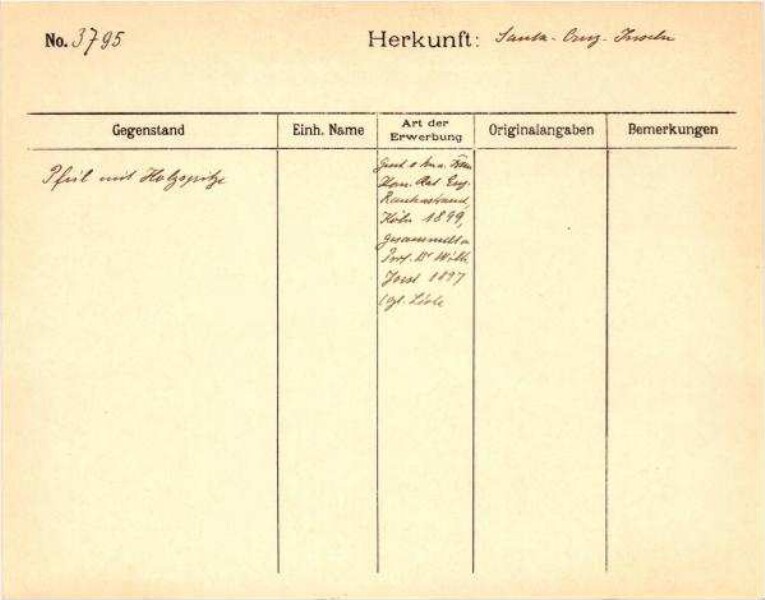 No. 3795
Herkunft: Santa-Cruz-Inseln
Gegenstand
Einh. Name
Art der Erwerbung
Originalangaben
Bemerkungen
Pfeil mit Holzspitze
Gesch. v.
Kom. Rat Eug.
Rautenstrauch,
Köln 1899,
gesammelt v.
Prof. Dr Wilh.
Joest 1897
vgl. Liste